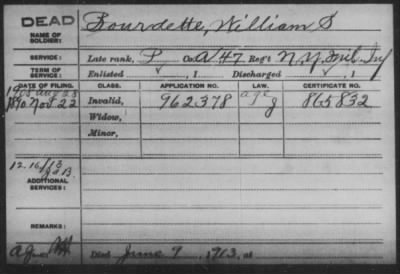 DEAD Bourdette, William S
NAME OF SOLDIER:
SERVICE: Late rank, P Co. A 47 Reg't N.Y. Mil. Inf
TERM OF SERVICE: Enlisted ✓, 1 Discharged ✓, 1
DATE OF FILING. CLASS. APPLICATION NO. LAW. CERTIFICATE NO.
1908 Aug 23 age
1890 Nov 22 Invalid, 962378 g 865832
Widow,
Minor,
12-16/13
ADDITIONAL SERVICES:
REMARKS:
Died June 9, 1913, at